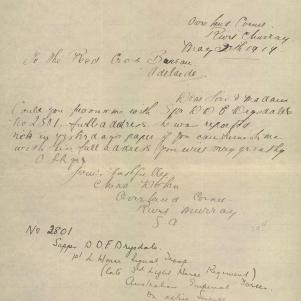 Overland Corner
River Murray
May 1919
To The Red Cross Bureau
Adelaide
Dear Sir or Madam
Could you furnish me with Spr D D E Drysdale's
No 2801. full address. he was reported
in yesterdays paper if you can furnish me
with his full address you will very greatly
Oblige
Yours faithfully
Chas
Overland Corner
River Murray
S A
No 2801
Sapper D. D. E. Drysdale.
1st L Horse Signal Troop
(late 3rd Light Horse Regiment)
Australian Imperial Forces.
On active service